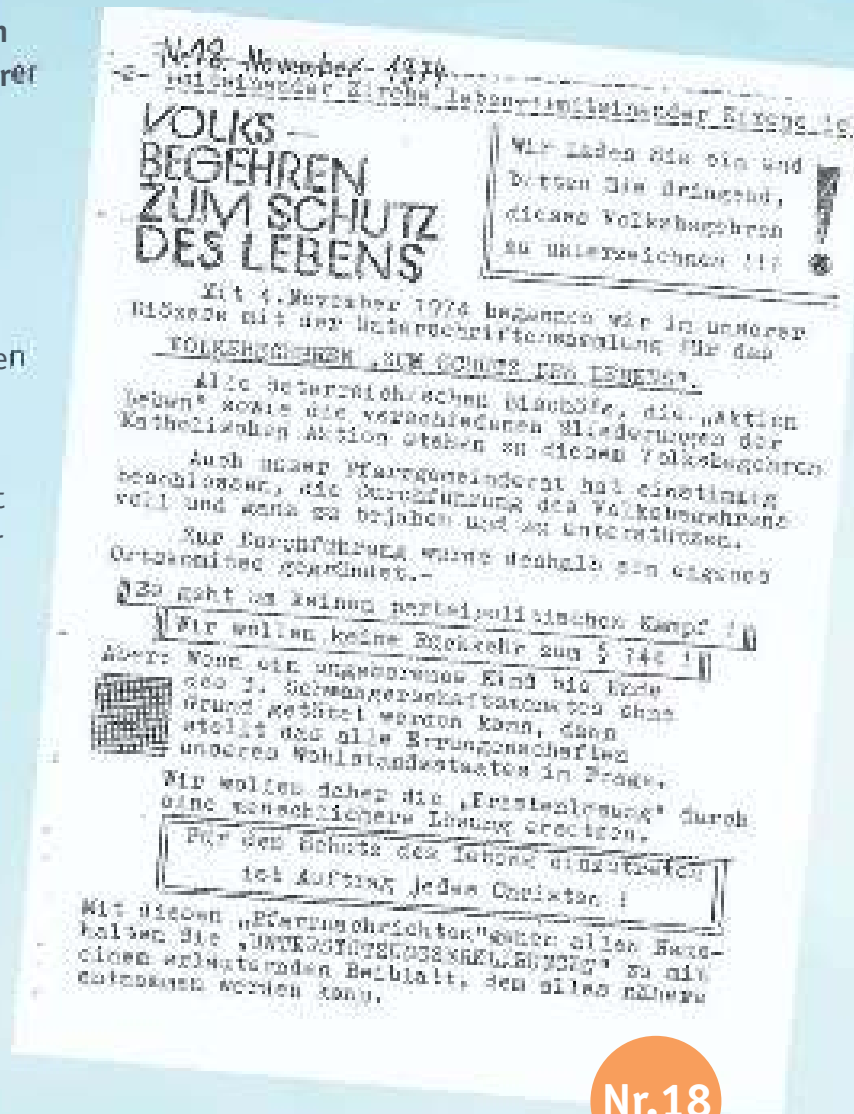 n
rer
en
t
Nr. 18 November - 1974
-2- miteinander Kirche leben-:-miteinander Kirche le
VOLKS –
BEGEHREN
ZUM SCHUTZ
DES LEBENS
Wir laden Sie ein und
bitten Sie dringend,
dieses Volksbegehren
zu unterzeichnen !!!
!
Mit 4.November 1974 beginnen wir in unserer
Diözese mit der Unterschriftensammlung für das
VOLKSBEGEHREN „ZUM SCHUTZ DES LEBENS".
Alle österreichischen Bischöfe, die „Aktion
Leben" sowie die verschiedenen Gliederungen der
Katholischen Aktion stehen zu diesem Volksbegehren
Auch unser Pfarrgemeinderat hat einstimmig
beschlossen, die Durchführung des Volksbegehrens
voll und ganz zu bejahen und zu unterstützen.
Zur Durchführung wurde deshalb ein eigenes
Ortskomitee gegründet.-
Es geht um keinen parteipolitischen Kampf !
Wir wollen keine Rückkehr zum § 144 !
Aber: Wenn ein ungeborenes Kind bis Ende
des 3. Schwangerschaftsmonates ohne
Grund getötet werden kann, dann
stellt das alle Errungenschaften
unseres Wohlstandsstaates in Frage.
Wir wollen daher die „Fristenlösung" durch
eine menschlichere Lösung ersetzen.
Für den Schutz des Lebens einzutreten
ist Auftrag jedes Christen !
Mit diesen „Pfarrnachrichten" gehen allen Haus-
halten die „UNTERSTÜTZUNGSERKLÄRUNGEN" zu mit
einem erläuternden Beiblatt, dem alles nähere
entnommen werden kann.
Nr.18